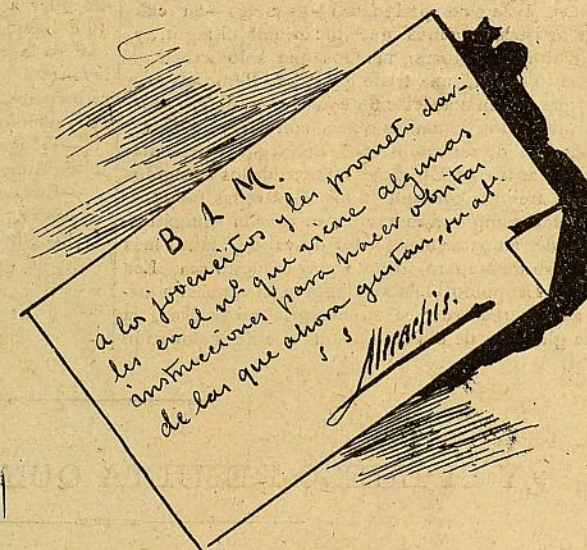 B L M.
a los jovencitos y les prometo dar-
les en el nº que viene algunas
instrucciones para hacer obritas
de las que ahora gustan, su at.
s s
Mecachis.